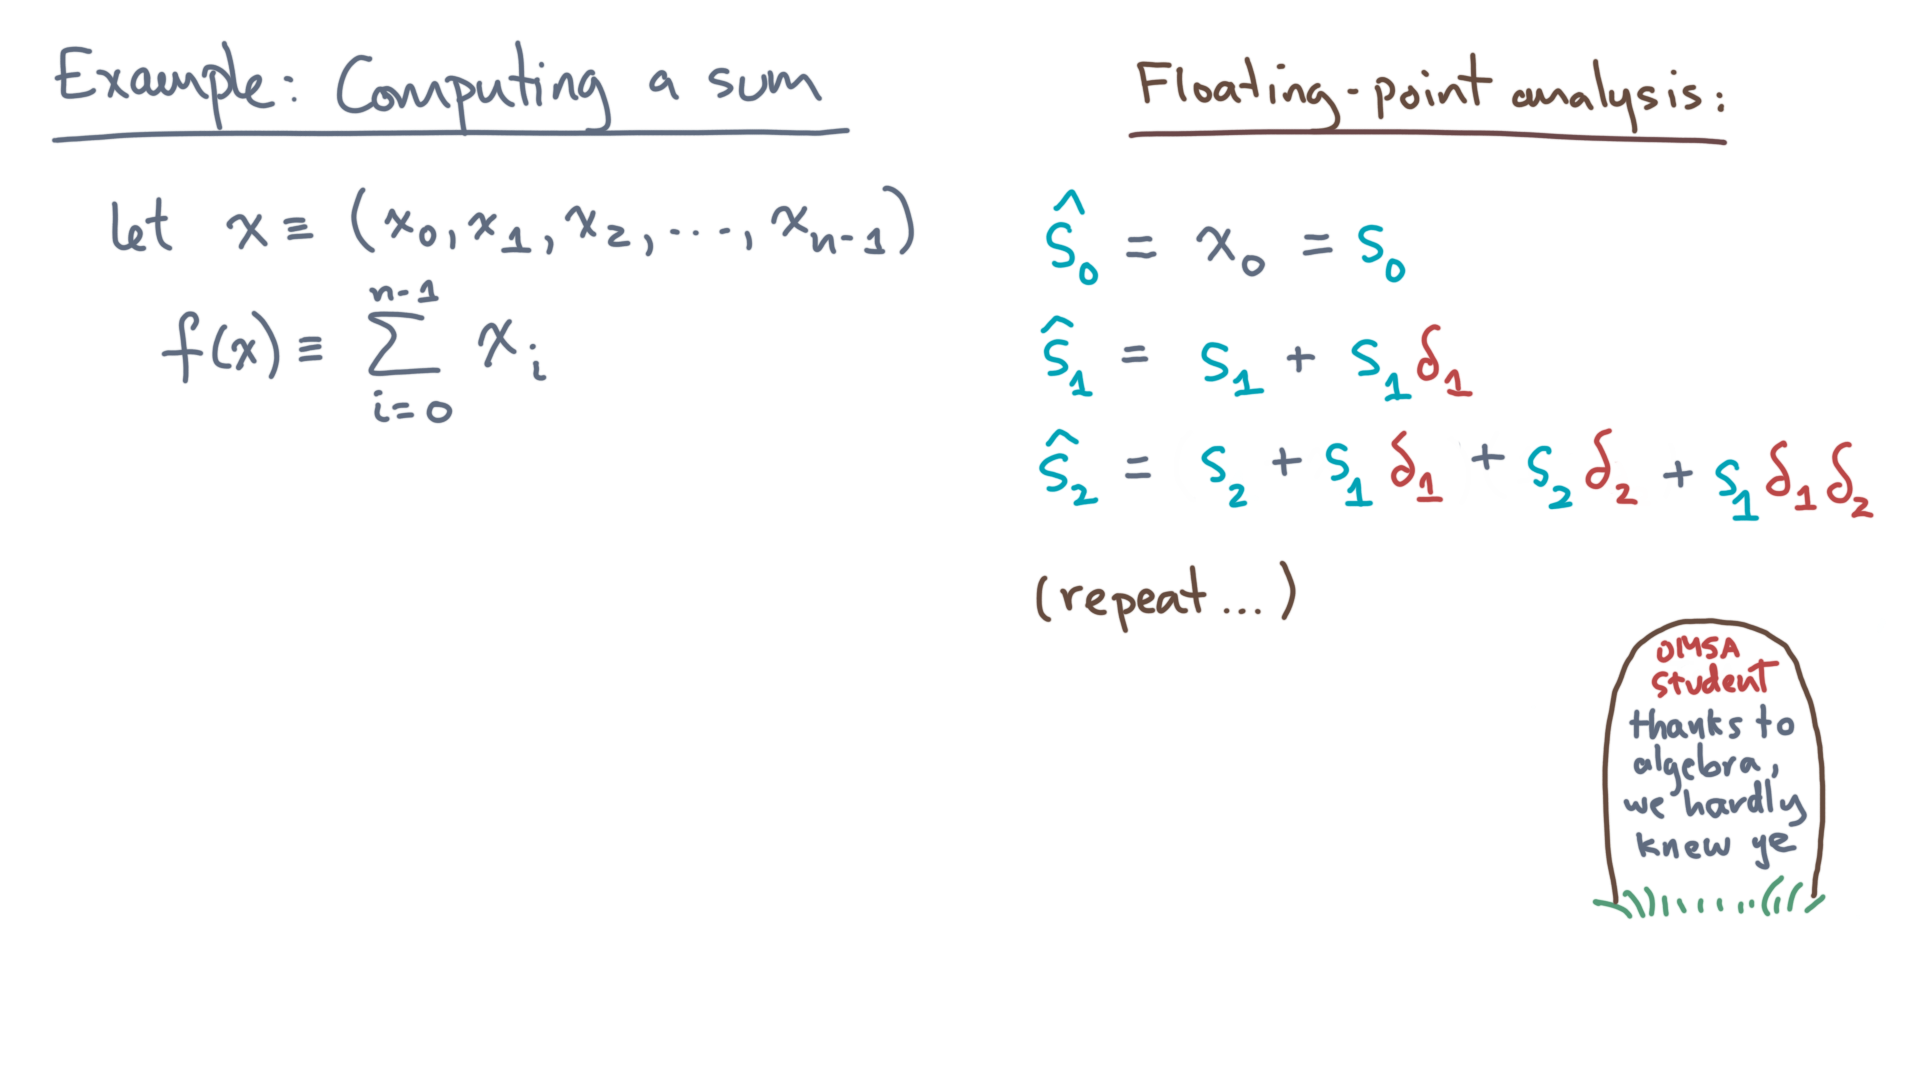 Example: Computing a sum
let x ≡ (x₀, x₁, x₂, ..., xₙ₋₁)
f(x) ≡ ∑ᵢ₌₀ⁿ⁻¹ xᵢ
Floating-point analysis:
ŝ₀ = x₀ = s₀
ŝ₁ = s₁ + s₁δ₁
ŝ₂ = s₂ + s₁δ₁ + s₂δ₂ + s₁δ₁δ₂
(repeat...)
OMSA
student
thanks to
algebra,
we hardly
knew ye